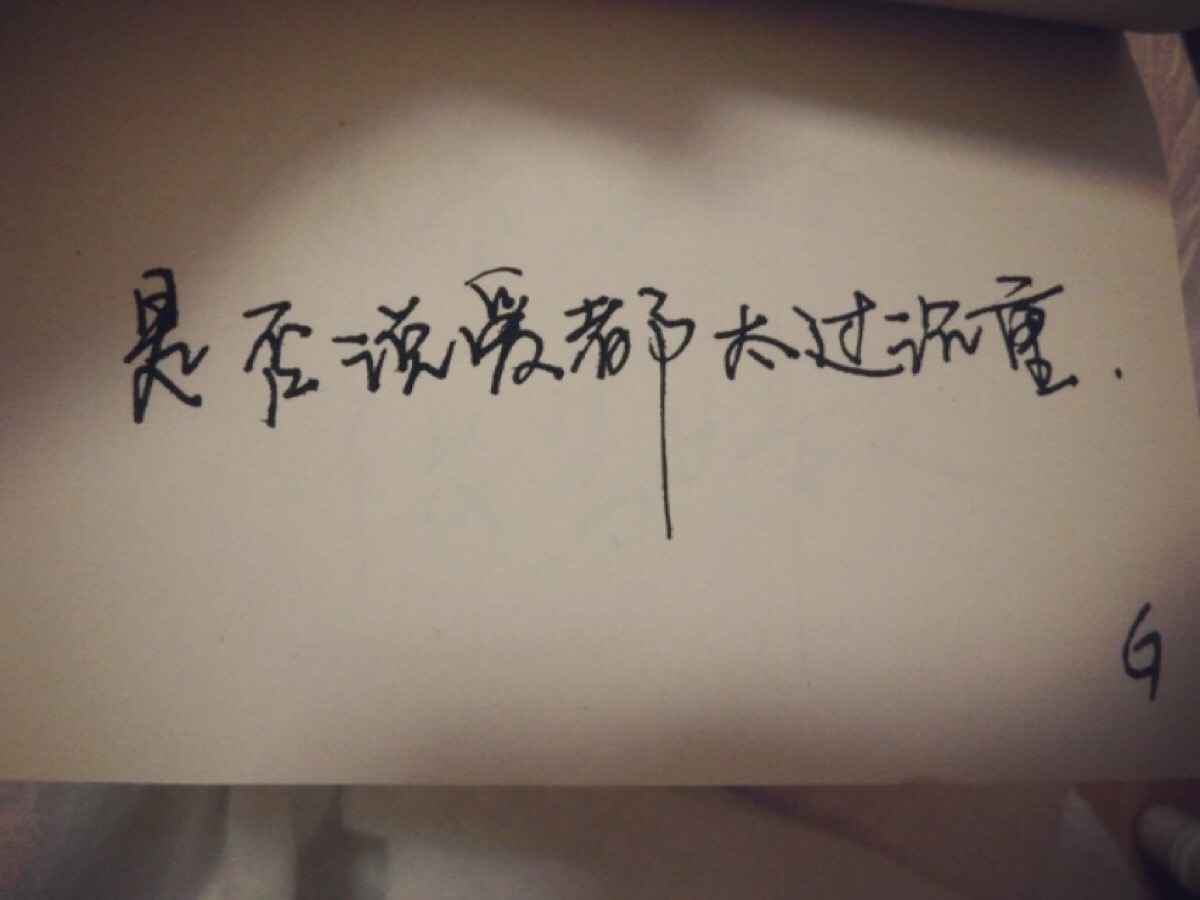 是否说爱都太过沉重.
G